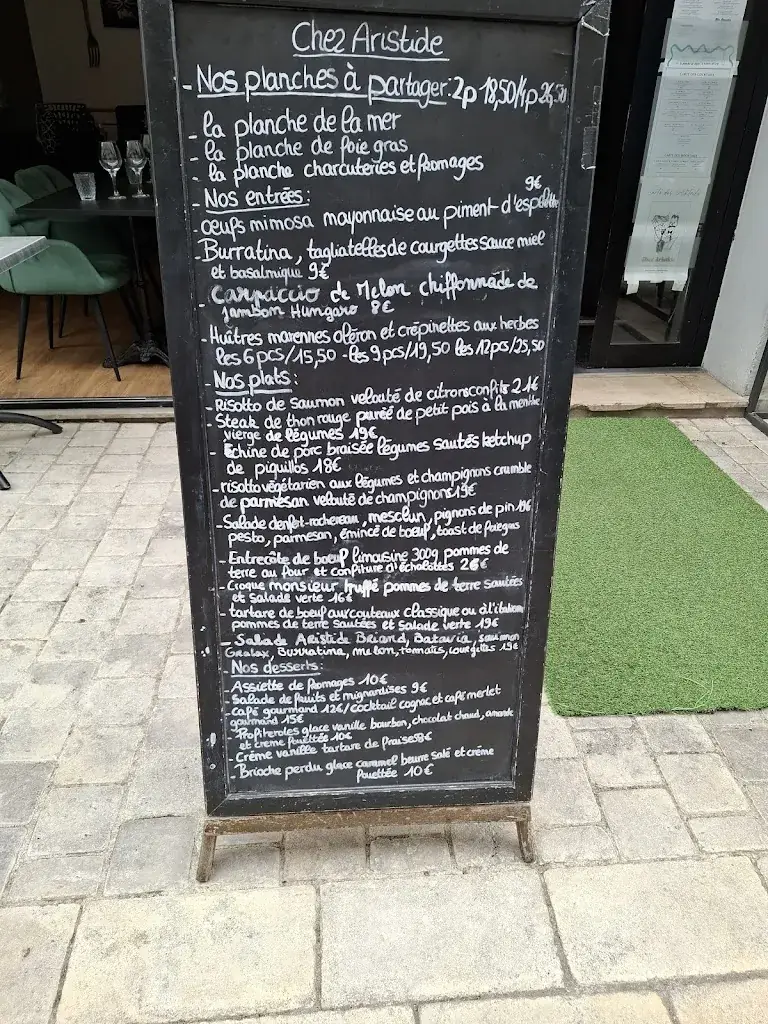 Chez Aristide
- Nos planches à partager: 2p 18,50/4p 26,50
- la planche de la mer
- la planche de foie gras
- la planche charcuteries et fromages
- Nos entrées: 9€
oeufs mimosa mayonnaise au piment d'espelette
- Burratina, tagliatelles de courgettes sauce miel
et basalmique 9€
- Carpaccio de Melon chiffonnade de
jambon Hungaro 8€
- Huîtres marennes oléron et crépinettes aux herbes
les 6pcs/15,50 - les 9pcs/19,50 les 12pcs/25,50
- Nos plats:
- Risotto de saumon velouté de citrons confits 21€
- Steak de thon rouge purée de petit pois à la menthe
vierge de légumes 19€
- Echine de porc braisée légumes sautés ketchup
de piquillos 18€
- risotto végétarien aux légumes et champignons crumble
de parmesan velouté de champignons 19€
- Salade denfert-rochereau, mesclun, pignons de pin 19€
pesto, parmesan, émincé de boeuf, toast de foie gras
- Entrecôte de boeuf limousine 300g pommes de
terre au four et confiture d'échalottes 26€
- Croque monsieur truffé pommes de terre sautées
et salade verte 16€
- tartare de boeuf au couteaux classique ou à l'italienne
pommes de terre sautées et salade verte 19€
- Salade Aristide Briand, Batavia, saumon
Gralax, Burratina, Melon, tomates, courgettes 19€
- Nos desserts:
- Assiette de fromages 10€
- Salade de fruits et mignardises 9€
- Café gourmand 12€/cocktail cognac et café merlet
gourmand 15€
- Profiteroles glace vanille bourbon, chocolat chaud, amande
et creme fouettée 10€
- Crème vanille tartare de fraises
- Brioche perdu glace caramel beurre salé et crème
fouettée 10€